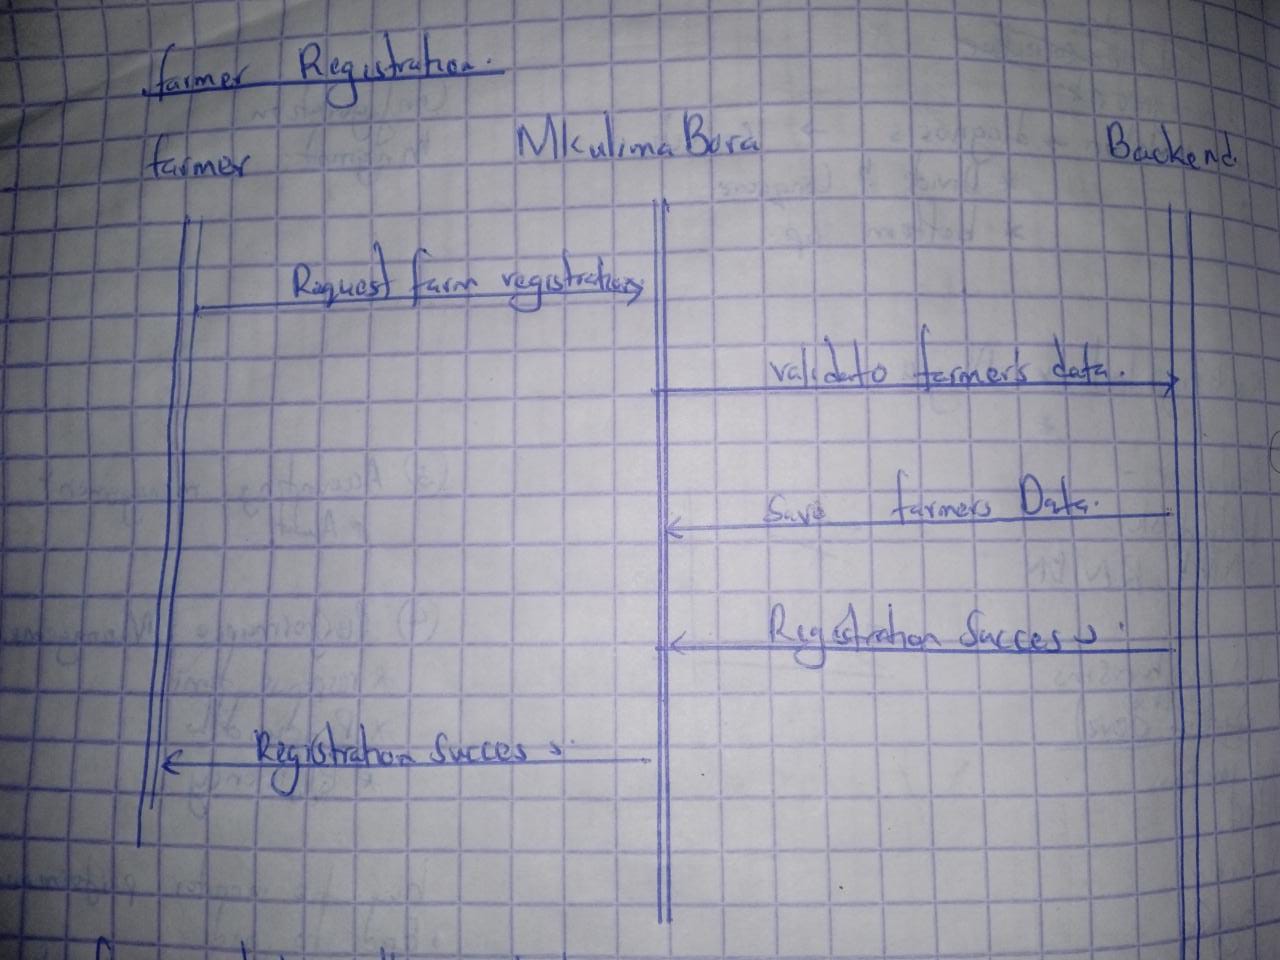 farmer Registration.
farmer MkulimaBora Backend.
Request farm registration
validate farmer's data.
Save farmers Data.
Registration Success.
Registration Success.